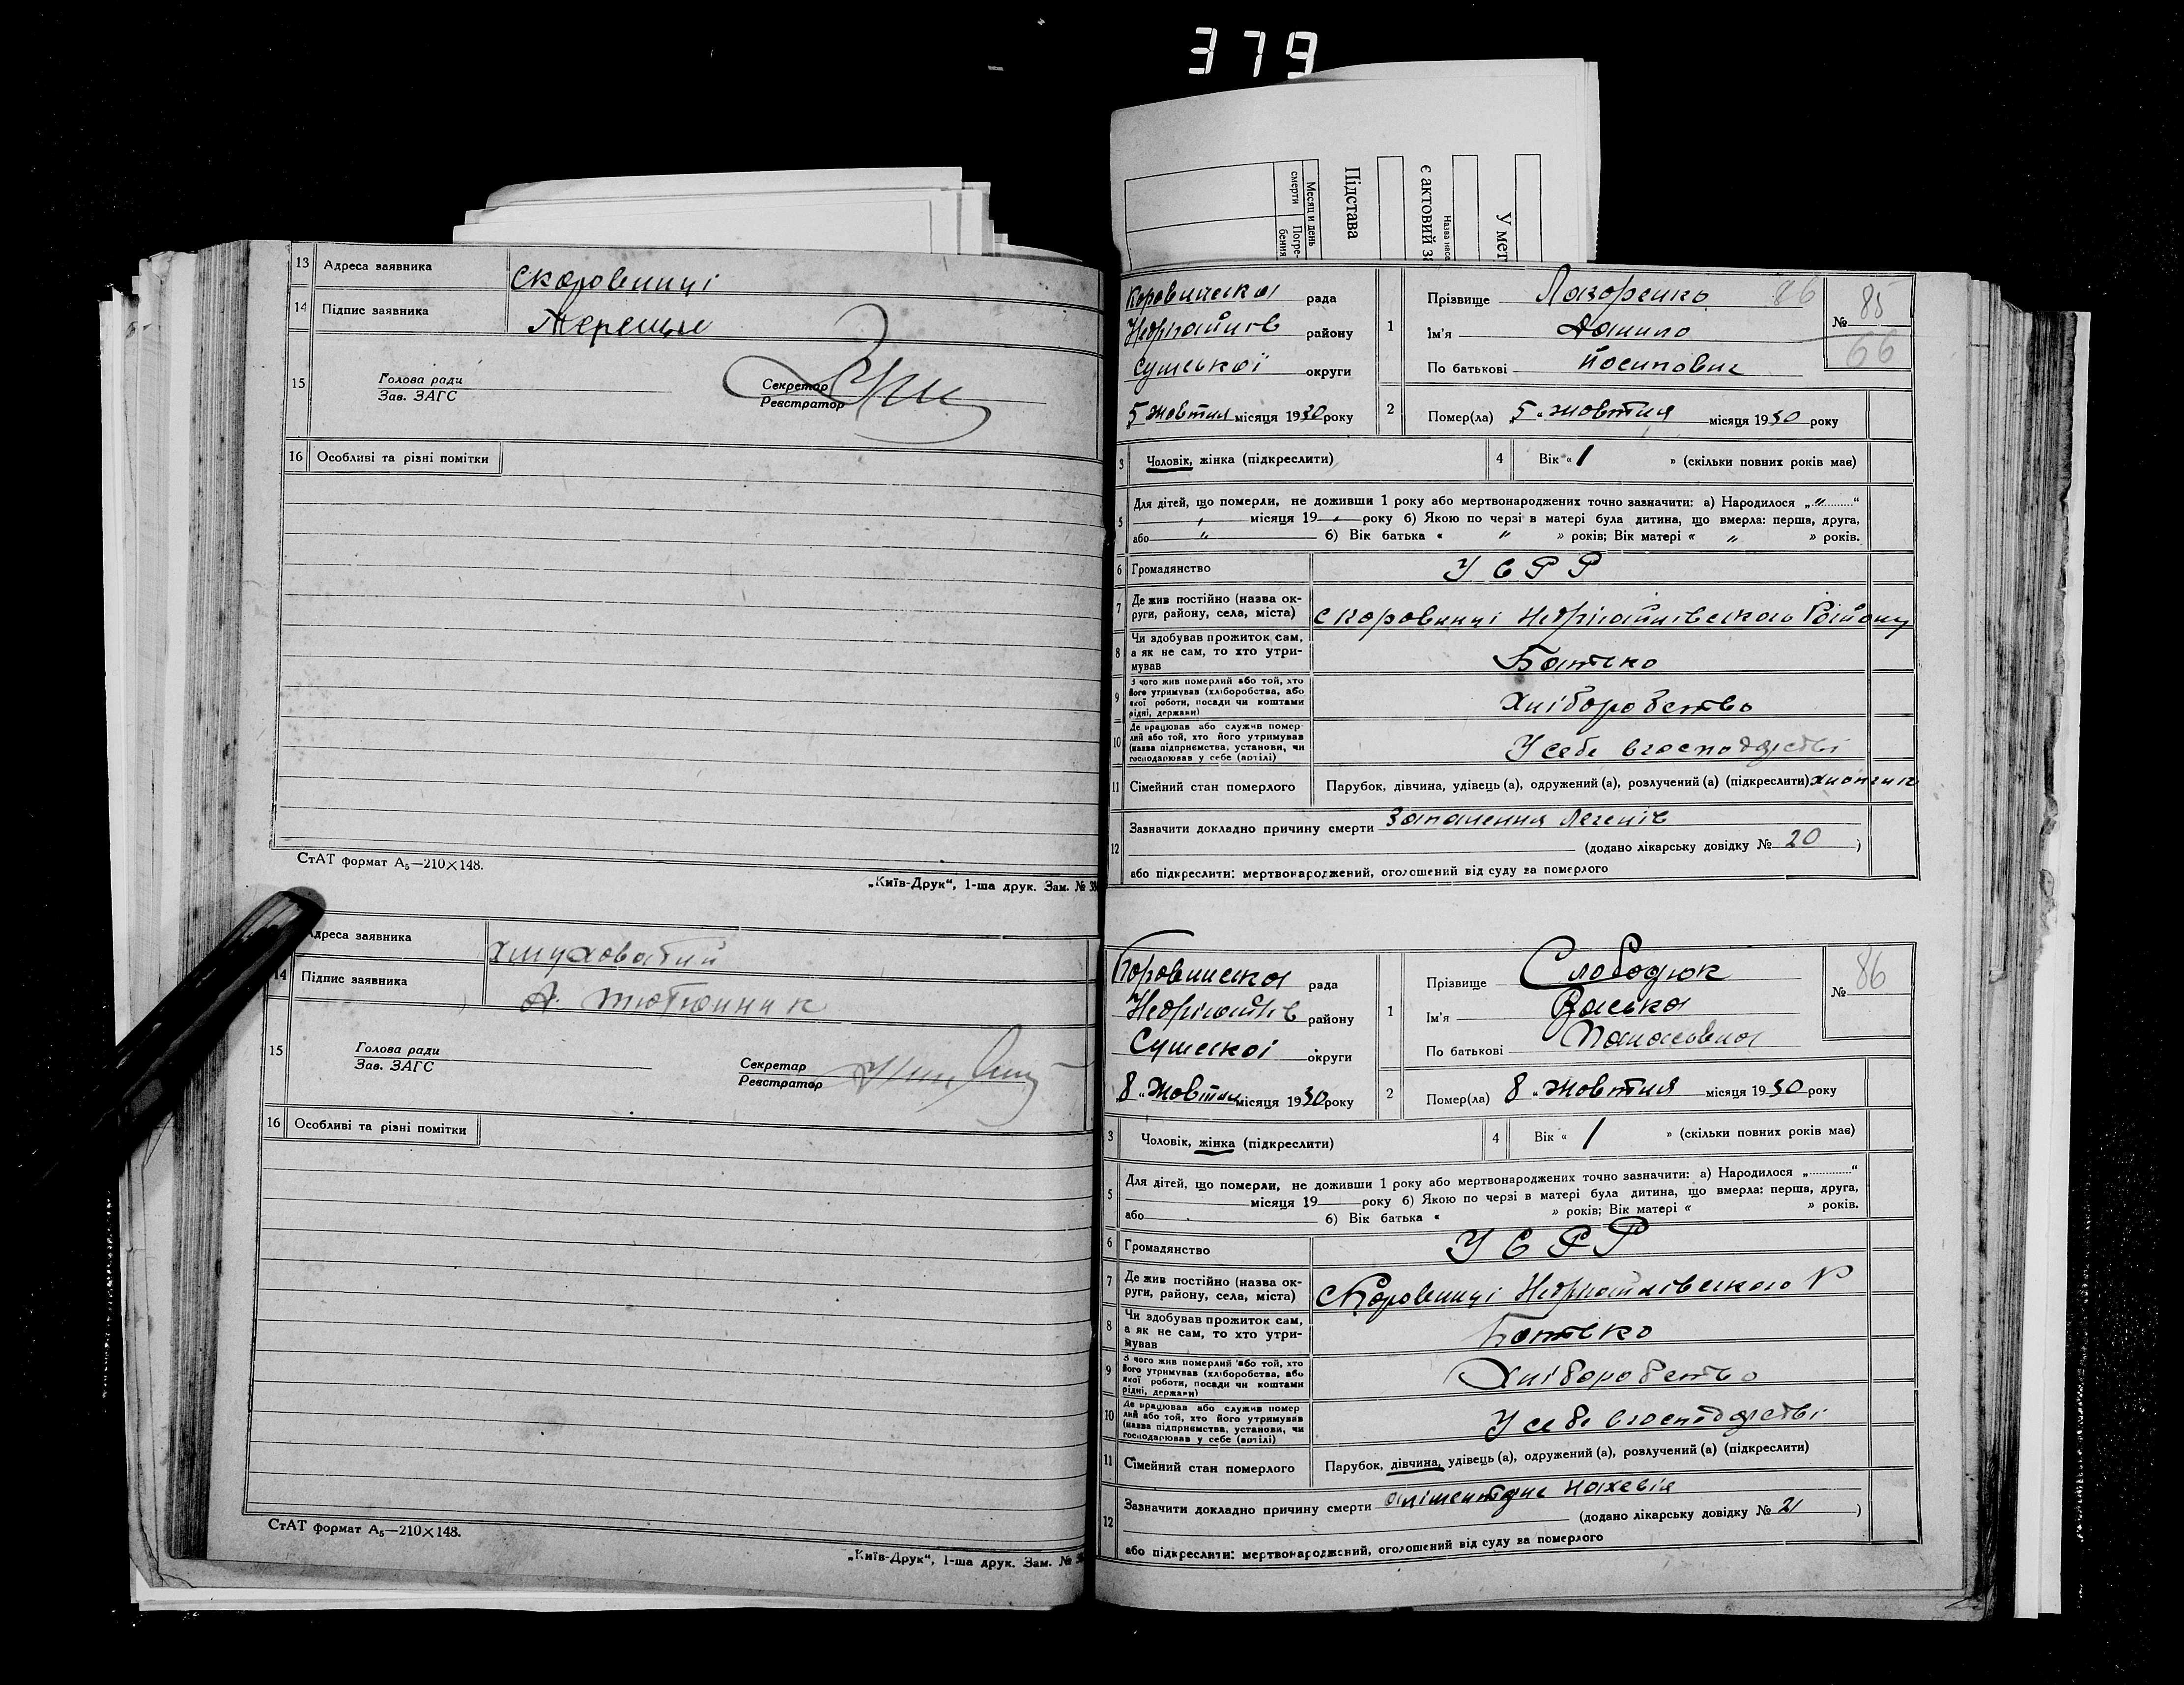 379
Месяц и день
смерти
Погре-
бения
Підстава
є актовий
У мет
13 Адреса заявника скоровинці
14 Підпис заявника
15 Голова ради
Зав. ЗАГС
Секретар
Реєстратор
16 Особливі та різні помітки
СтАТ формат А₅—210×148.
„Київ-Друк“, 1-ша друк. Зам. №
Адреса заявника
14 Підпис заявника А. тютюнник
15 Голова ради
Зав. ЗАГС
Секретар
Реєстратор
16 Особливі та різні помітки
СтАТ формат А₅—210×148.
„Київ-Друк“, 1-ша друк. Зам. №
Коровинська рада
Недригайлів району
Сумської округи
5 жовтня місяця 1930 року
1 Прізвище Лазоренко 86
Ім'я Данило
По батькові Йосипович
№ 85
66
2 Помер(ла) 5 „ жовтня місяця 1930 року
3 Чоловік, жінка (підкреслити)
4 Вік « 1 » (скільки повних років має)
5 Для дітей, що померли, не доживши 1 року або мертвонароджених точно зазначити: а) Народилося „ “
місяця 19 року б) Якою по черзі в матері була дитина, що вмерла: перша, друга,
або б) Вік батька « » років; Вік матері « » років.
6 Громадянство УСРР
7 Де жив постійно (назва ок-
руги, району, села, міста) с коровинці Недригайлівського Району
8 Чи здобував прожиток сам,
а як не сам, то хто утри-
мував Батько
9 З чого жив померлий або той, хто
його утримував (хліборобства, або
якої роботи, посади чи коштами
рідні, держави) Хліборобство
10 Де працював або служив помер
лий або той, хто його утримував
(назва підприємства, установи, чи
господарював у себе (артілі) У себе в господарстві
11 Сімейний стан померлого Парубок, дівчина, удівець (а), одружений (а), розлучений (а) (підкреслити) хлопчик
12 Зазначити докладно причину смерті Запалення Легенів
(додано лікарську довідку № 20 )
або підкреслити: мертвонароджений, оголошений від суду за померлого
Коровинська рада
Недригайлів району
Сумської округи
8 „ Жовтня місяця 1930 року
1 Прізвище Слободюк
Ім'я Васька
По батькові Панасовна
№ 86
2 Помер(ла) 8 „ жовтня місяця 1930 року
3 Чоловік, жінка (підкреслити)
4 Вік « 1 » (скільки повних років має)
5 Для дітей, що померли, не доживши 1 року або мертвонароджених точно зазначити: а) Народилося „ “
місяця 19 року б) Якою по черзі в матері була дитина, що вмерла: перша, друга,
або б) Вік батька « » років; Вік матері « » років.
6 Громадянство УСРР
7 Де жив постійно (назва ок-
руги, району, села, міста) с Коровинці Недригайлівського Р
8 Чи здобував прожиток сам,
а як не сам, то хто утри-
мував Батько
9 З чого жив померлий або той, хто
його утримував (хліборобства, або
якої роботи, посади чи коштами
рідні, держави) Хліборобство
10 Де працював або служив помер
лий або той, хто його утримував
(назва підприємства, установи, чи
господарював у себе (артілі) У себе в господарстві
11 Сімейний стан померлого Парубок, дівчина, удівець (а), одружений (а), розлучений (а) (підкреслити)
12 Зазначити докладно причину смерті
(додано лікарську довідку № 21 )
або підкреслити: мертвонароджений, оголошений від суду за померлого